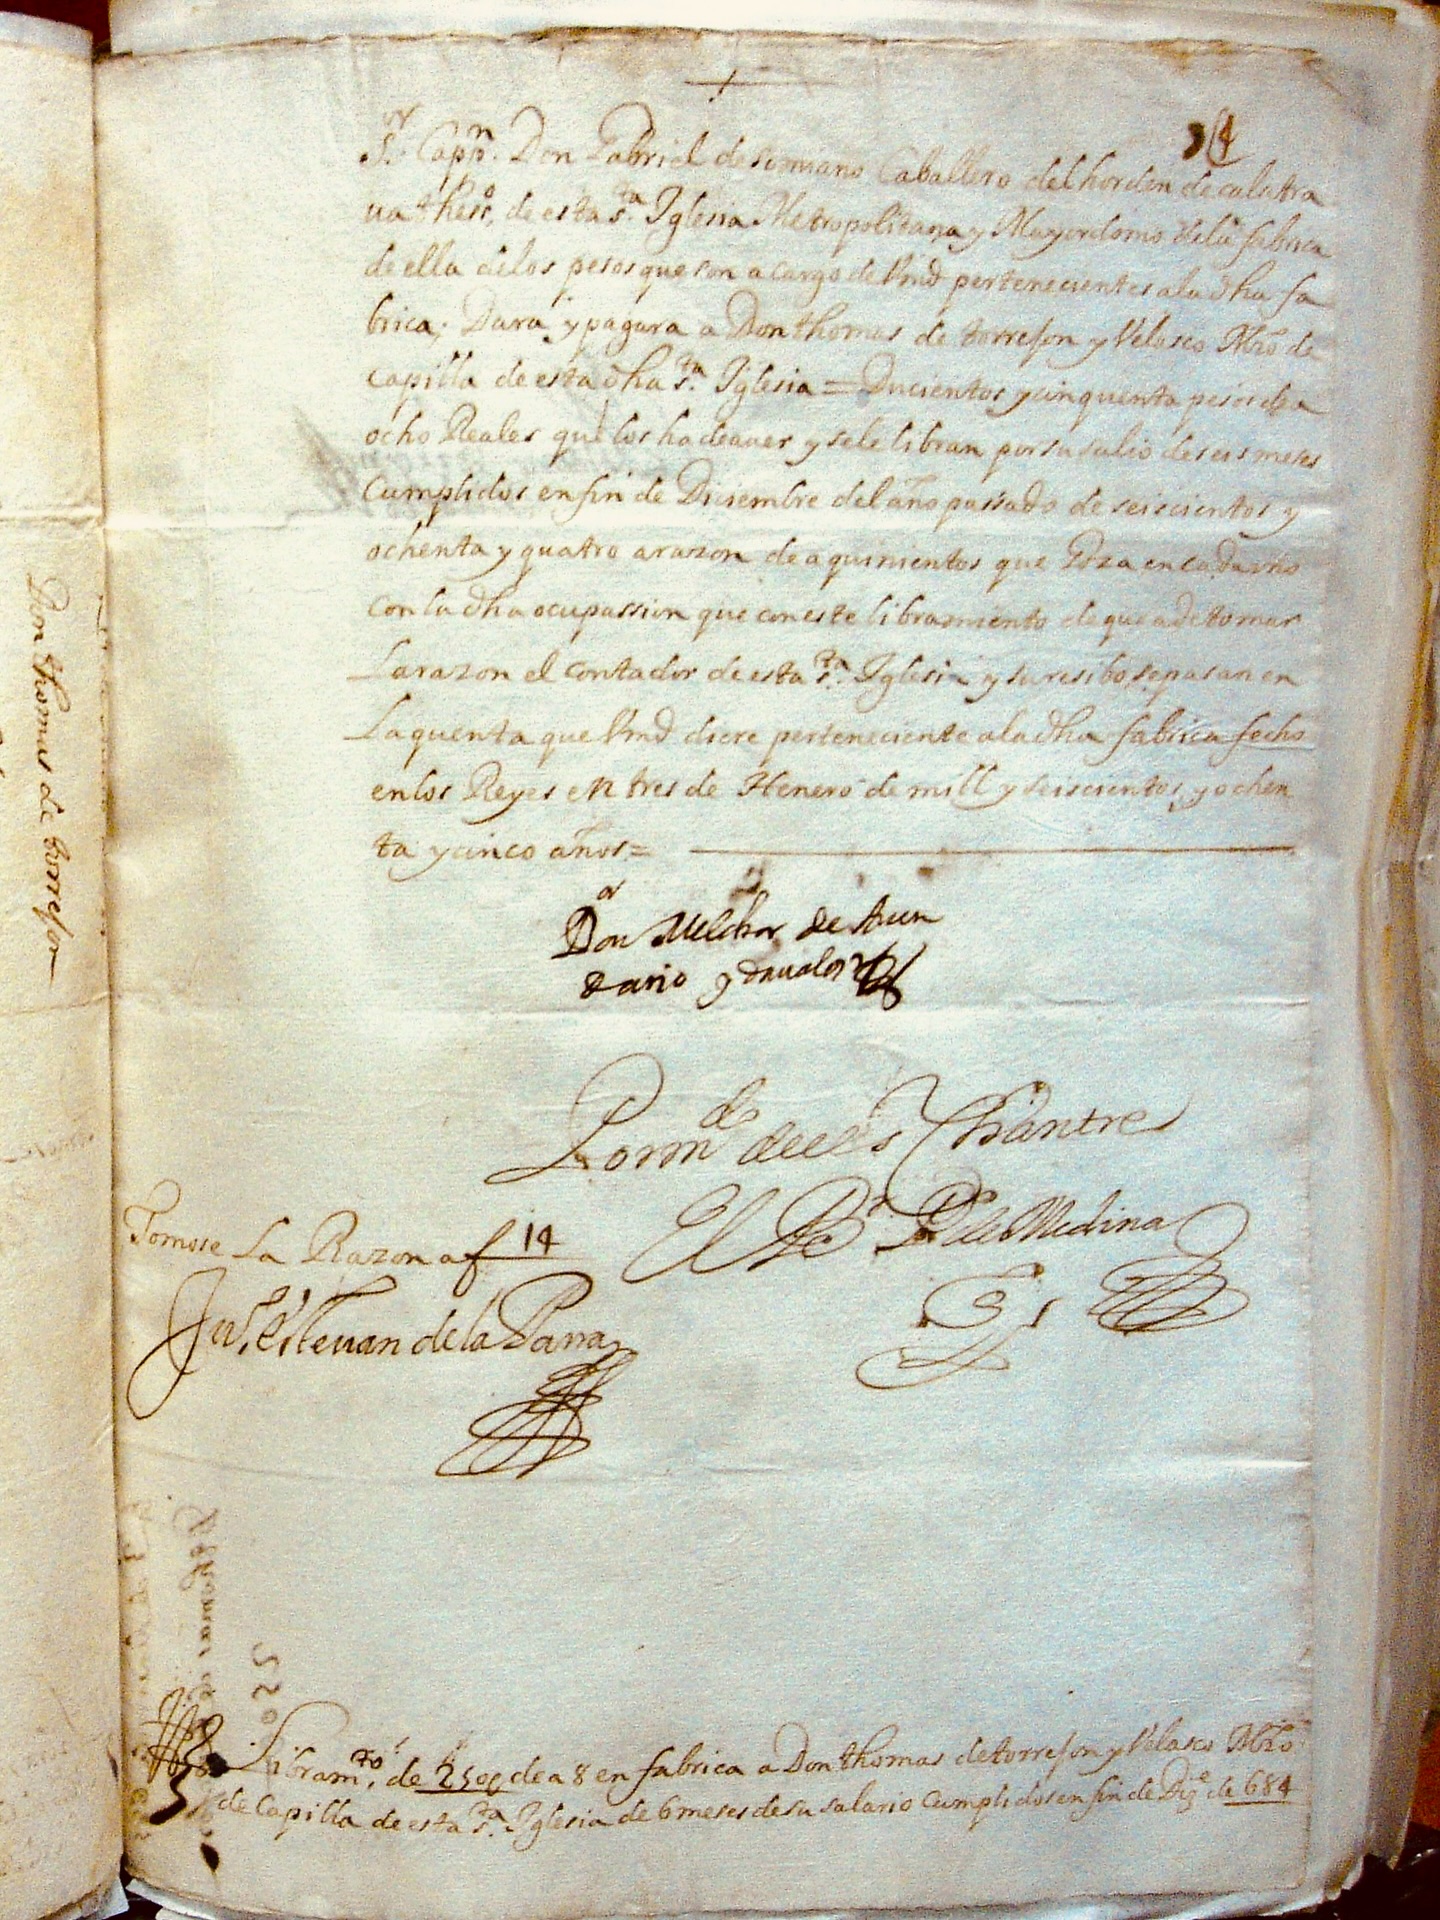 14
Sor. Cappn. Don Gabriel de Somiano Caballero del horden de calatra
ua thesso. de esta sta. Iglesia Metropolitana y Mayordomo dela fabrica
de ella delos pesos que son a cargo de Vmd pertenecientes ala dha fa
brica; Dara y pagara a Don thomas de torrejon y Velasco Mro de
capilla de esta dha sta. Iglesia = Ducientos y cinquenta pesos de a
ocho Reales que los ha de auer y se le libran por su salio de seis meses
Cumplidos en fin de Diciembre del año passado de seiscientos y
ochenta y quatro a razon de a quinientos que Goza en cada vno
con la dha ocupassion que con este libramiento de que a de tomar
La razon el contador de esta sta. Iglesia y su resibo se pasan en
La quenta que Vmd diere perteneciente ala dha fabrica fecho
en los Reyes en tres de Henero de mill y seiscientos y ochen
ta y cinco años =
Dor Don Melchor de Auen
daño y daualos
Por mdo de los ss Chantre
El Br P de Medina
Tomose La Razon a f 14
Jua. esteuan de la Parra
Libramto. de 250 ps de a 8 en fabrica a Don thomas de torrejon y Velasco Mro
de Capilla de esta sta. Iglesia de 6 meses de su salario cumplidos en fin de Dize de 684
Don thomas de torrejon